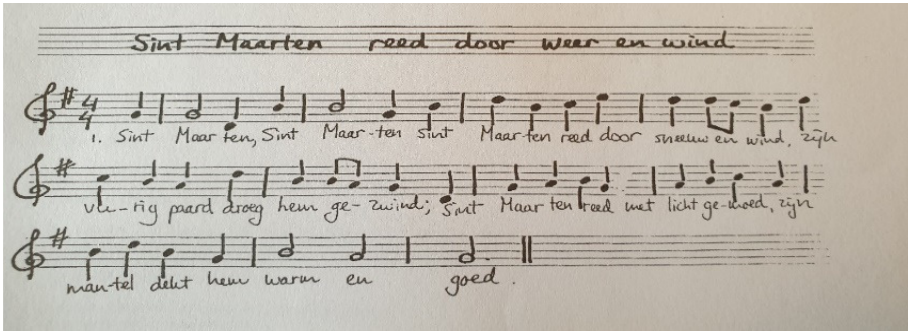 Sint Maarten reed door weer en wind
4 4
1. Sint Maar ten, Sint Maar-ten sint Maar-ten reed door sneeuw en wind, zijn
vu-rig paard droeg hem ge-zwind; Sint Maar ten reed met licht ge-moed, zijn
man-tel dekt hem warm en goed.